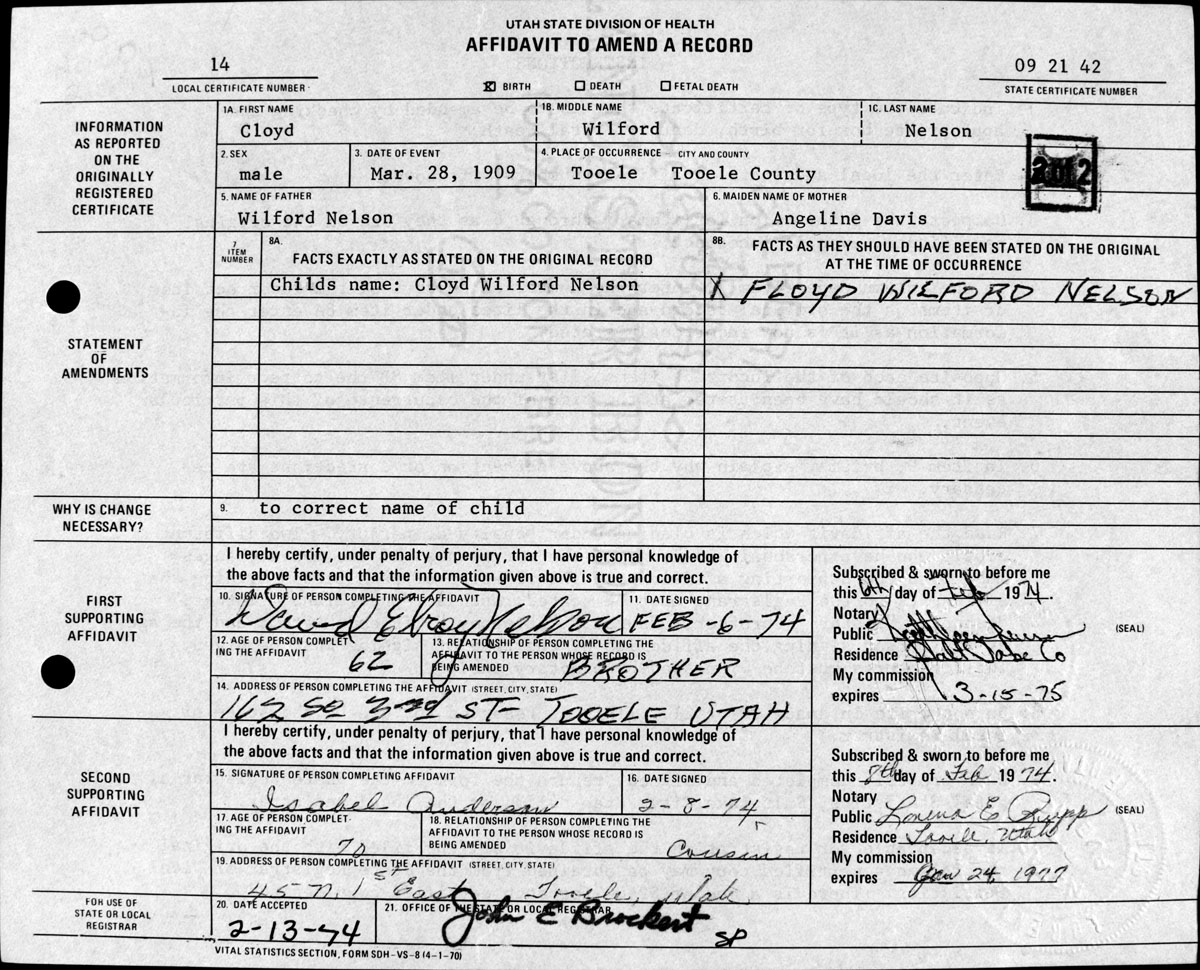 UTAH STATE DIVISION OF HEALTH
AFFIDAVIT TO AMEND A RECORD
14
LOCAL CERTIFICATE NUMBER
☒ BIRTH ☐ DEATH ☐ FETAL DEATH
09 21 42
STATE CERTIFICATE NUMBER
INFORMATION
AS REPORTED
ON THE
ORIGINALLY
REGISTERED
CERTIFICATE
1A. FIRST NAME
Cloyd
1B. MIDDLE NAME
Wilford
1C. LAST NAME
Nelson
2. SEX
male
3. DATE OF EVENT
Mar. 28, 1909
4. PLACE OF OCCURRENCE – CITY AND COUNTY
Tooele Tooele County
2012
5. NAME OF FATHER
Wilford Nelson
6. MAIDEN NAME OF MOTHER
Angeline Davis
STATEMENT
OF
AMENDMENTS
7
ITEM
NUMBER
8A.
FACTS EXACTLY AS STATED ON THE ORIGINAL RECORD
8B.
FACTS AS THEY SHOULD HAVE BEEN STATED ON THE ORIGINAL
AT THE TIME OF OCCURRENCE
Childs name: Cloyd Wilford Nelson
X FLOYD WILFORD NELSON
WHY IS CHANGE
NECESSARY?
9. to correct name of child
FIRST
SUPPORTING
AFFIDAVIT
I hereby certify, under penalty of perjury, that I have personal knowledge of
the above facts and that the information given above is true and correct.
10. SIGNATURE OF PERSON COMPLETING THE AFFIDAVIT
David Elroy Nelson
11. DATE SIGNED
FEB -6-74
12. AGE OF PERSON COMPLET
ING THE AFFIDAVIT
62
13. RELATIONSHIP OF PERSON COMPLETING THE
AFFIDAVIT TO THE PERSON WHOSE RECORD IS
BEING AMENDED
BROTHER
14. ADDRESS OF PERSON COMPLETING THE AFFIDAVIT (STREET, CITY, STATE)
162 SO 3rd ST- TOOELE UTAH
Subscribed & sworn to before me
this 6th day of Feb 1974.
Notary
Public
Residence Salt Lake Co
My commission
expires 3-15-75
(SEAL)
SECOND
SUPPORTING
AFFIDAVIT
I hereby certify, under penalty of perjury, that I have personal knowledge of
the above facts and that the information given above is true and correct.
15. SIGNATURE OF PERSON COMPLETING AFFIDAVIT
Isabel Anderson
16. DATE SIGNED
2-8-74
17. AGE OF PERSON COMPLET-
ING THE AFFIDAVIT
70
18. RELATIONSHIP OF PERSON COMPLETING THE
AFFIDAVIT TO THE PERSON WHOSE RECORD IS
BEING AMENDED
Cousin
19. ADDRESS OF PERSON COMPLETING THE AFFIDAVIT (STREET, CITY, STATE)
45 N. 1st East Tooele, Utah.
Subscribed & sworn to before me
this 8th day of Feb 1974.
Notary
Public Lorena E Rupp
Residence Tooele, Utah
My commission
expires Jan 24, 1977
(SEAL)
FOR USE OF
STATE OR LOCAL
REGISTRAR
20. DATE ACCEPTED
2-13-74
21. OFFICE OF THE STATE OR LOCAL REGISTRAR
John E Brockert
SP
VITAL STATISTICS SECTION, FORM SDH-VS-8 (4-1-70)